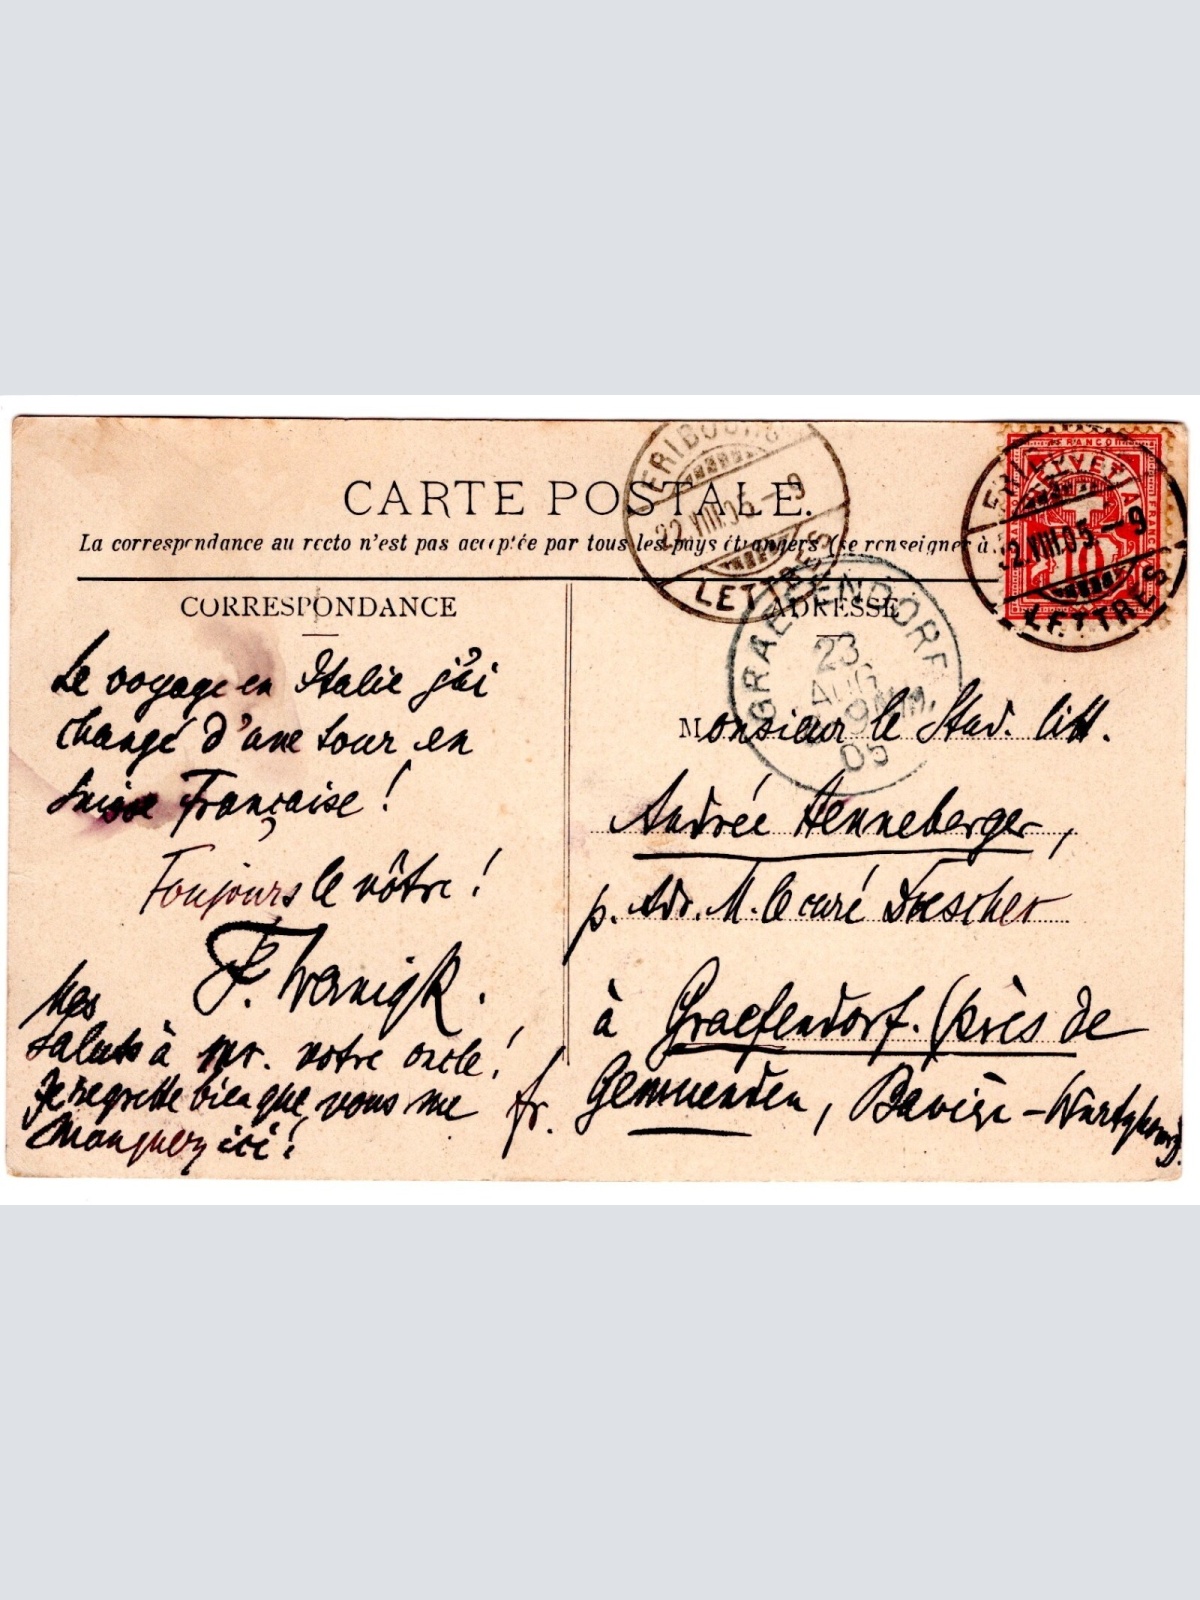 CARTE POSTALE.
La correspondance au recto n'est pas acceptée par tous les pays étrangers (se renseigner à
FRIBOURG
22.VIII.05.-9
LETTRES
FRANCO
22.VIII.05.-9
LETTRES
10
GRAEFENDORF
23
AUG
05
CORRESPONDANCE
Le voyage en Italie j'ai
changé d'une tour en
Suisse Française!
Toujours le vôtre!
F. Wernigk.
Mes
saluts à mr. votre oncle!
Je regrette bien que vous me
manquez ici!
ADRESSE
Monsieur le Stud. litt.
Andrée Henneberger,
p. Adr. M. le curé Drescher
à Graefendorf. (près de
fr. Gemuenden, Bavière-Wurtzbourg.